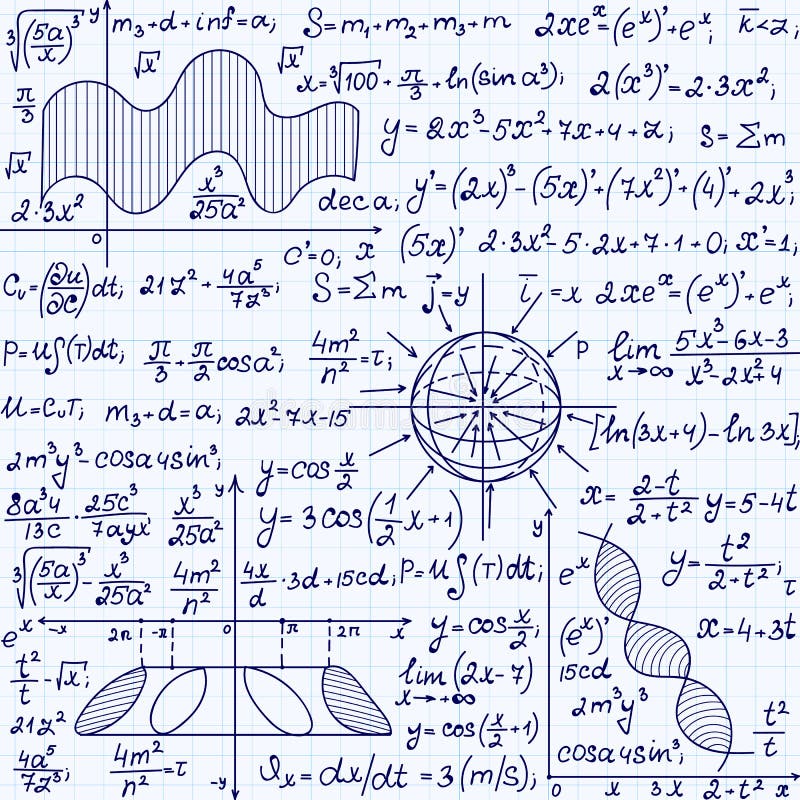 ∛(5a/x)³ y m₃+d+inf=a; S=m₁+m₂+m₃+m 2xeˣ=(eˣ)'+eˣ; k̅<z;
√x √x x=∛100+π/3+ln(sin a³); 2(x³)'=2·3x²;
π/3 y=2x³-5x²+7x+4+z; S=Σm
√x x³/25a² deca; y'=(2x)³-(5x)'+(7x²)'+(4)'+2x³;
2·3x²
0 C'=0; x (5x)' 2·3x²-5·2x+7·1+0; x'=1;
Cᵥ=(∂u/∂C)dt; 21z²+4a⁵/7z³; S=Σm j⃗=y i̅=x 2xeˣ=(eˣ)'+eˣ;
P=u∫(T)dt; π/3+π/2cosa²; 4m²/n²=τ; P lim x→∞ 5x³-6x-3/x³-2x²+4
u=CᵥT; m₃+d=a; 2x²-7x-15 [ln(3x+4)-ln3x];
2m³y³-cosa4sin³; y=cos x/2 x=2-t/2+t² y=5-4t
8a³4/13c·25c³/7ayx x³/25a² y y=3cos(1/2x+1) y
∛(5a/x)³-x³/25a² 4m²/n² 4x/d·3d+15cd; P=u∫(T)dt; eˣ y=t²/2+t²; τ
eˣ -x 2π -π 0 π 2π x y=cos x/2; (eˣ)' x=4+3t
t²/t-√x; lim x→+∞ (2x-7) 15cd
21z² y=cos(x/2+1) 2m³y³ t²/t
4a⁵/7z³; 4m²/n²=τ cosa4sin³;
-y ϑₓ=dx/dt=3(m/s); 0 x 3x 2+t² x